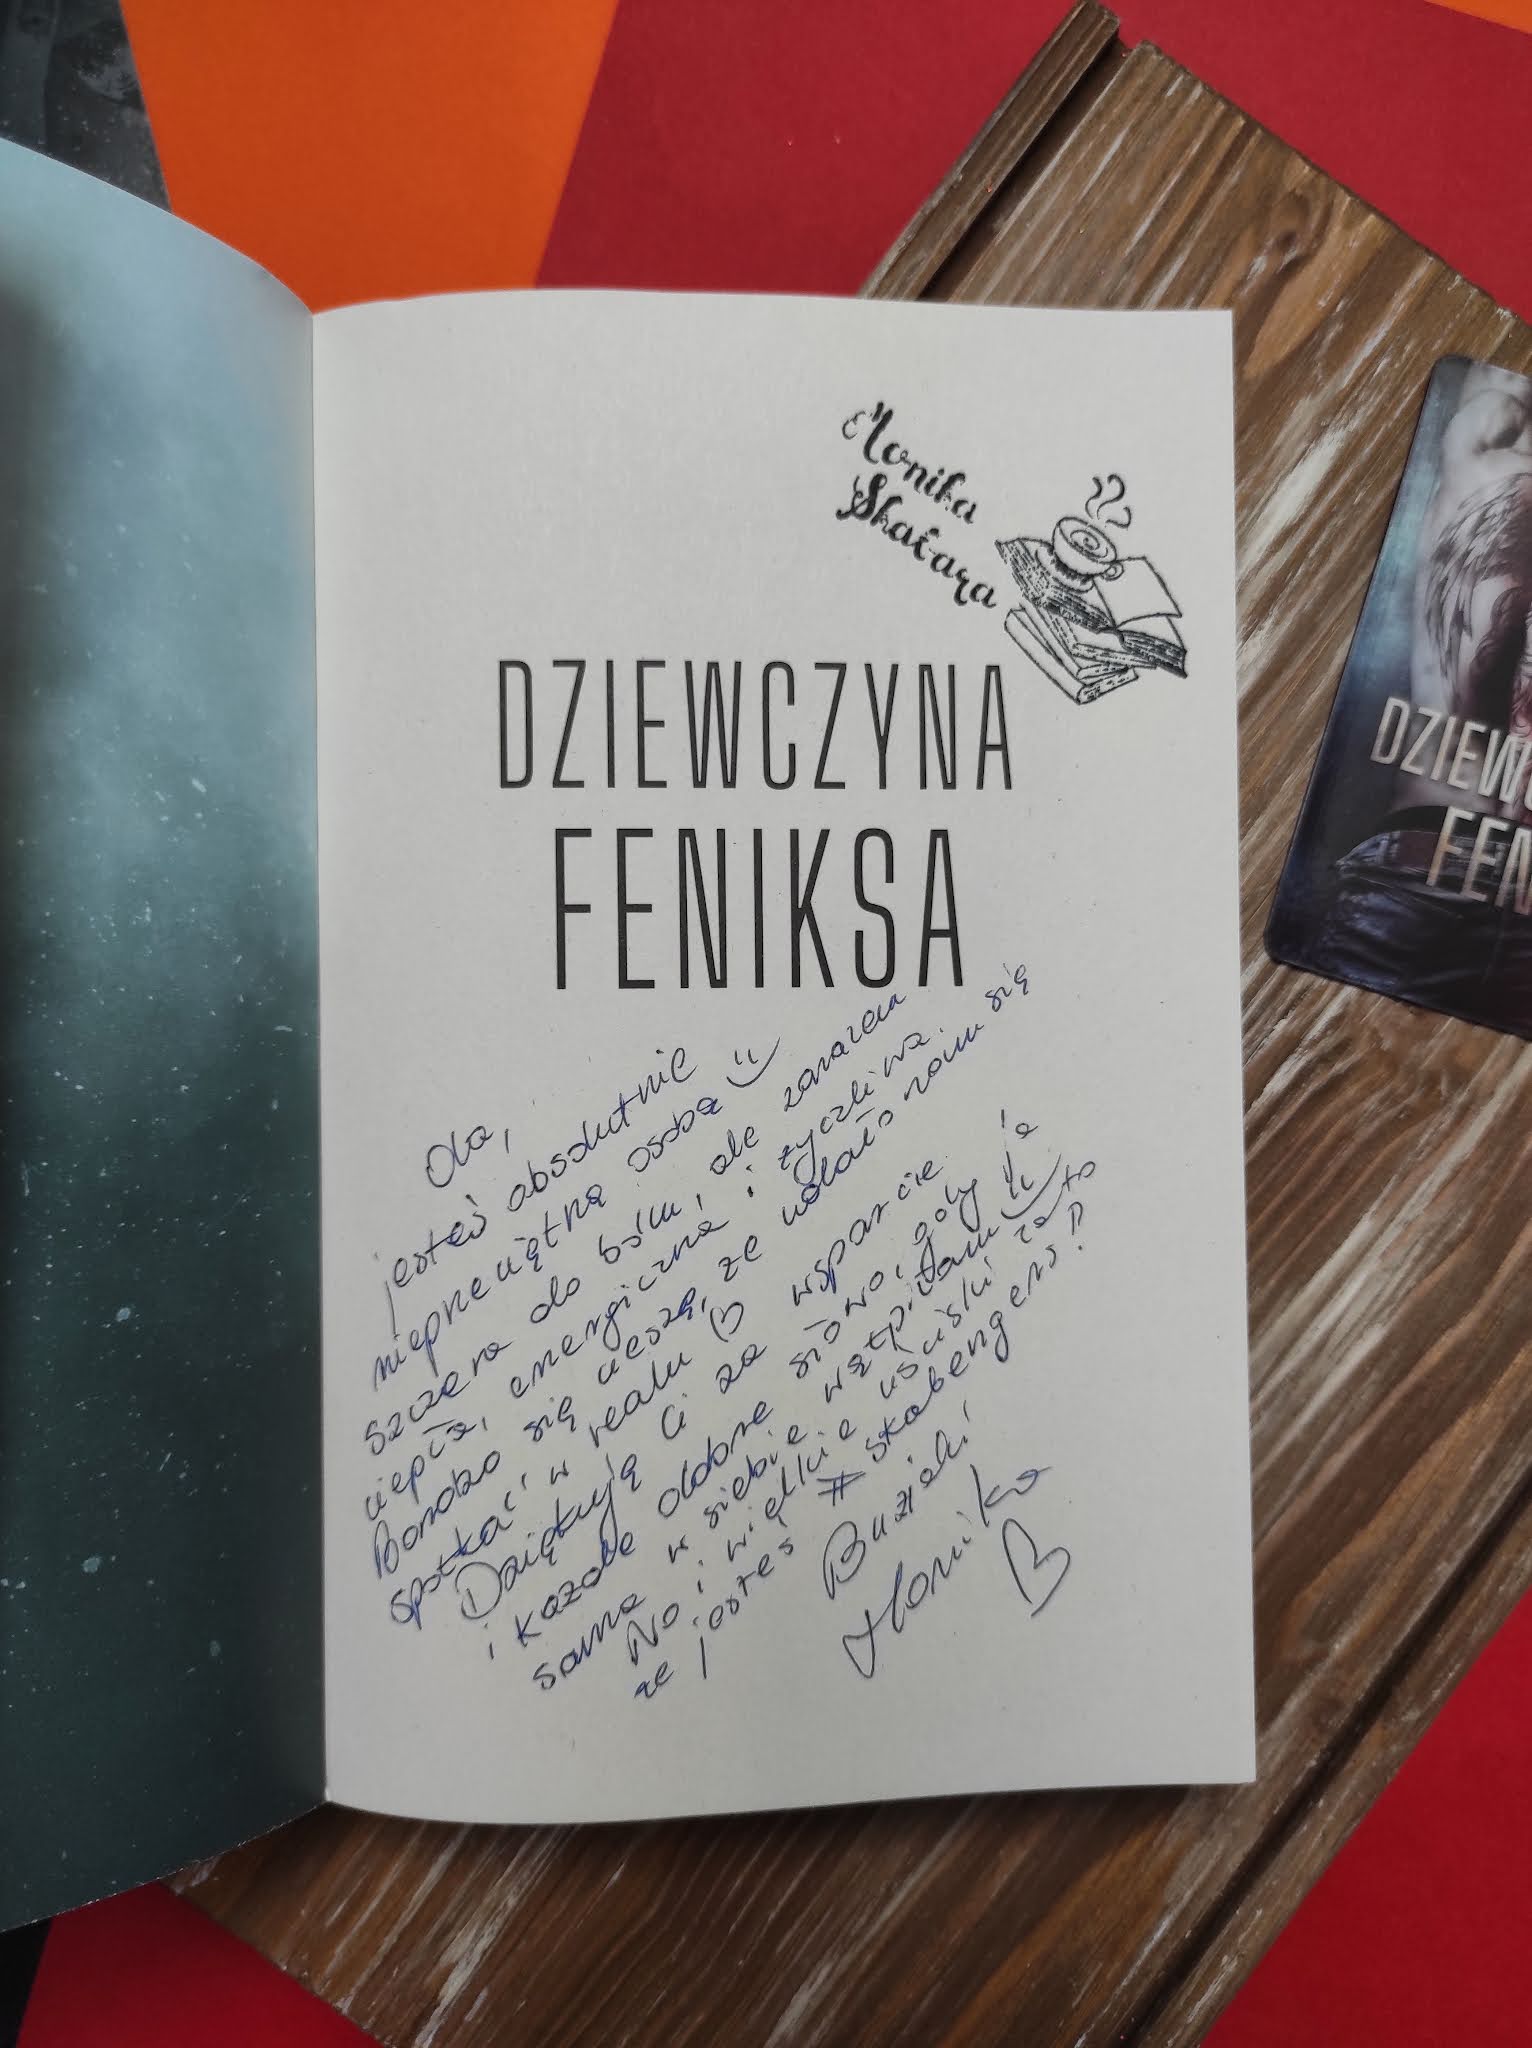 Monika
Skabara
DZIEWCZYNA
FENIKSA
Ola,
jesteś absolutnie
nieprzeciętną osobą :)
szczera do bólu, ale zarazem
ciepła, energiczna i życzliwa.
Bardzo się cieszę, że udało nam się
spotkać w realu <3
Dziękuję Ci za wsparcie
i każde dobre słowo, gdy ja
sama w siebie wątpiłam :)
No i wielkie uściski za to
że jesteś #skabengers!!
Buziaki
Monika
DZIEW
FEN